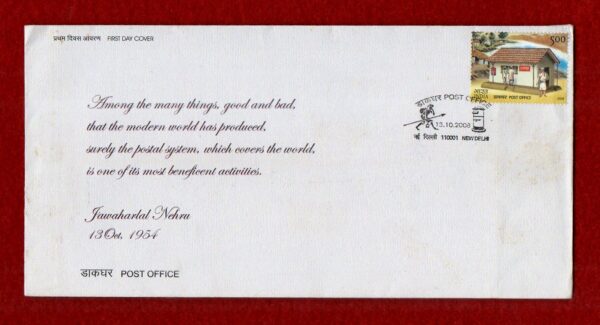 प्रथम दिवस आवरण FIRST DAY COVER
500
भारत INDIA
डाकघर POST OFFICE
2008
डाकघर POST OFFICE
13.10.2008
नई दिल्ली 110001 NEW DELHI
Among the many things, good and bad,
that the modern world has produced,
surely the postal system, which covers the world,
is one of its most beneficent activities.
Jawaharlal Nehru
13 Oct, 1954
डाकघर POST OFFICE